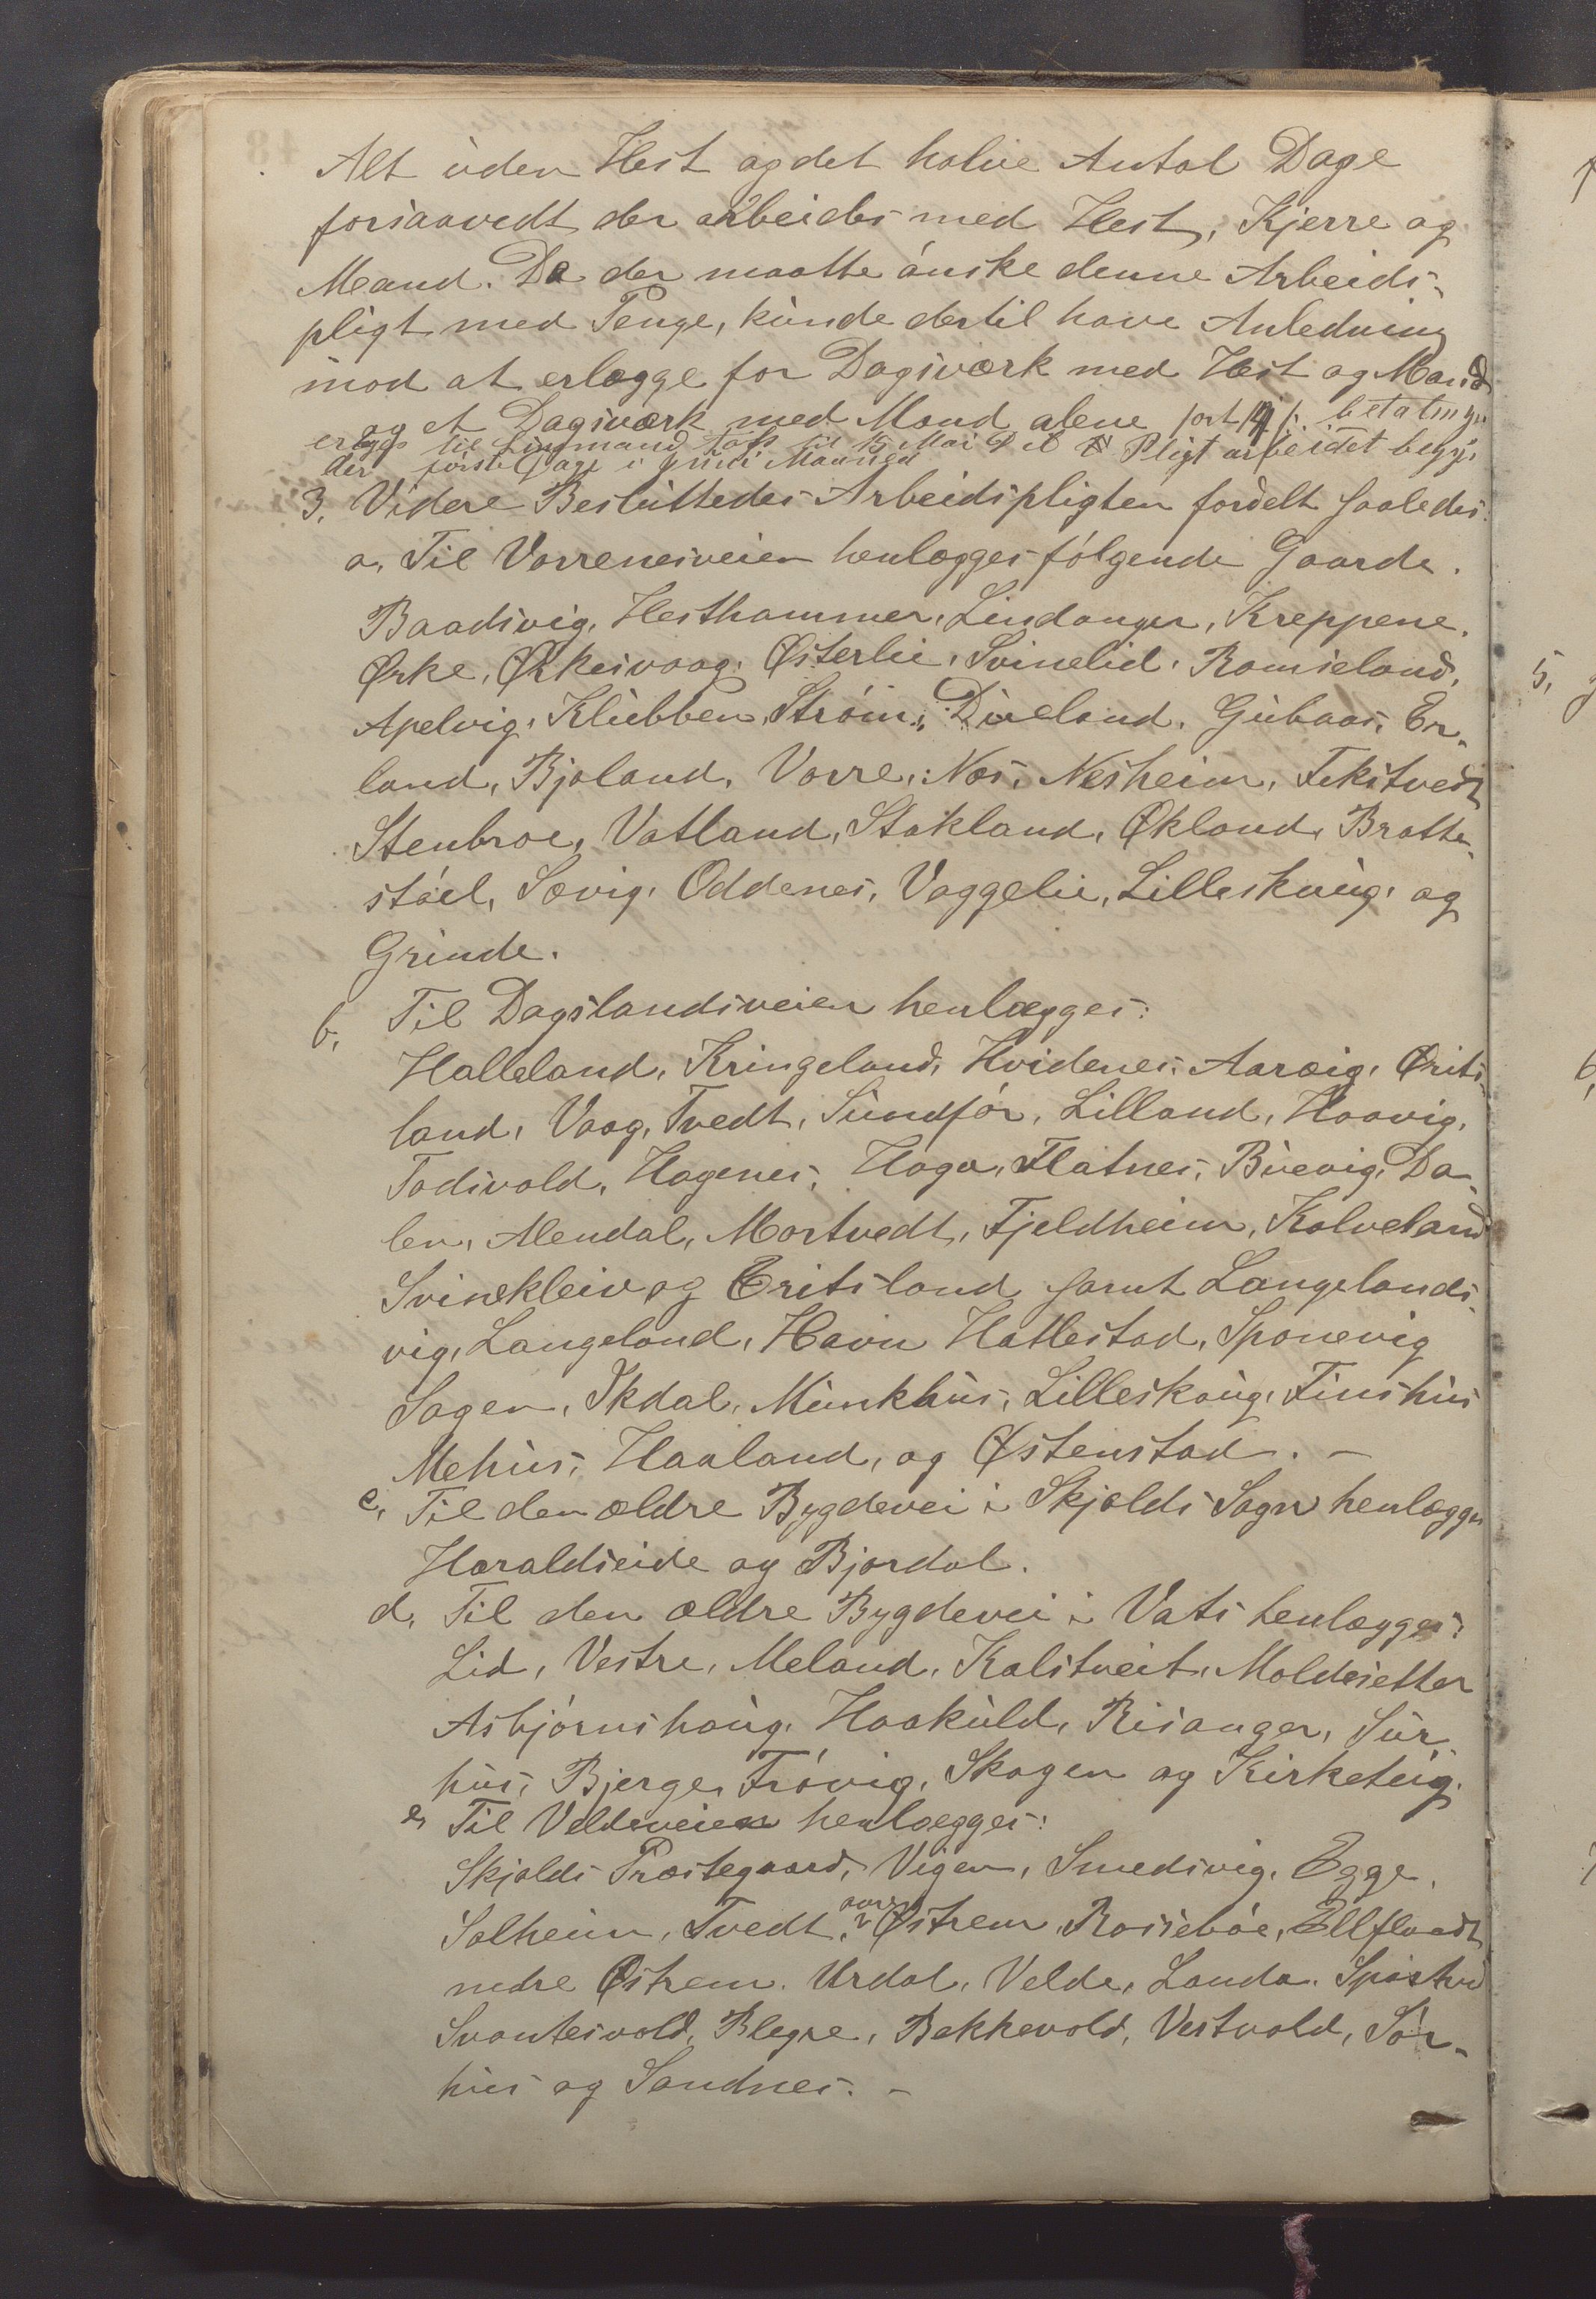 Alt uden Hest og det halve Antal Dage
forsaavedt der arbeides med Hest, Kjerre og
Mand. De der maatte ønske denne Arbeids-
pligt med Penge, kunde dertil have Anledning
mod at erlægge for Dagsværk med Hest og Mand
og et Dagsværk med Mand alene betalingen
erlægges til Linsmand til 15 Mai Pligt arbeidet begy-
der første Dage i Juni Maaned
3. Videre Besluttedes Arbeidspligten fordelt saaledes:
a. Til Vorrenesveien henlægges følgende Gaarde.
Baadsvig, Hesthammer, Lindanger, Kreppene,
Ørke, Ørkesvaag, Østerlie, Svinelid, Ramseland,
Apelvig, Klubben, Strøm, Dueland, Gubaas, Er-
land, Bjoland, Vorre, Nes, Nesheim, Fikstvedt
Stenbroe, Vatland, Stakland, Økland, Bratte-
støel, Sævig, Oddenes, Vaggelie, Lilleskoug, og
Grinde.
b. Til Dagslandsveien henlægges:
Halleland, Kringeland, Hvidenes, Aarvig, Ørits-
land, Vaag, Tvedt, Sundfør, Lilland, Haavig,
Todsvold, Hagenes, Haga, Flatnes, Buevig, Da-
len, Alendal, Mortvedt, Fjeldheim, Kolveland
Svinekleiv og Eritsland samt Langelands-
vig, Langeland, Havn Hatlestad, Sponevig
Sagen, Ikdal, Munkhus, Lilleskoug, Finshus
Mehus, Haaland, og Østenstad. –
c. Til den ældre Bygdevei i Skjolds Sogn henlægges
Haraldseide og Bjordal.
d. Til den ældre Bygdevei i Vats henlægges:
Lid, Vestre, Meland, Kalstveit, Moldesetter
Asbjørnshoug, Haakuld, Risanger, Sør-
hus, Bjerge, Frøvig, Skogen og Kirketeig.
e. Til Veldeveien henlægges:
Skjolds Præstegaard, Vigen, Smedsvig, Egge,
Solheim, Tvedt, øvre Østrem, Rossebøe, Ellflaadt
nedre Østrem, Urdal, Velde, Landa,
Svantesvold, Blegre, Bekkevold, Vestvold, Sør-
hus og Sandnes. –